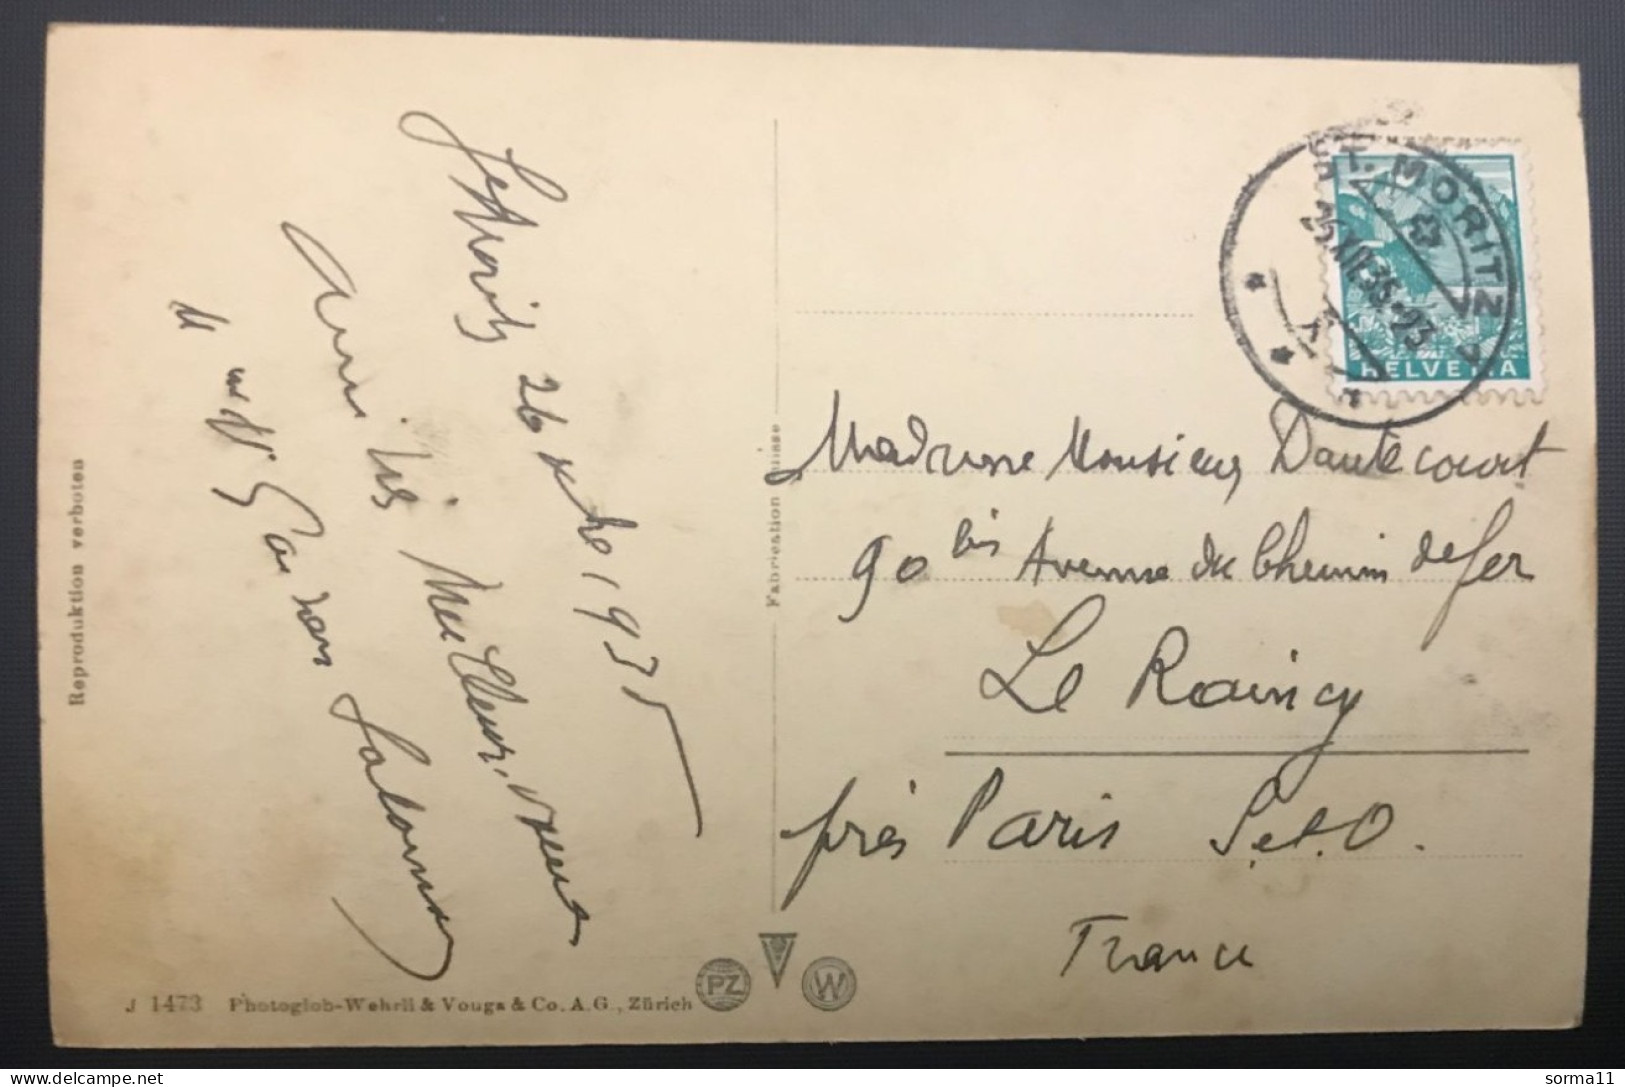 St Moritz 26 Xbre 1935
Avec les Meilleurs vœux
Reproduktion verboten
Fabrication Suisse
J 1473 Photoglob-Wehrli & Vouga & Co. A.G., Zürich
PZ
W
ST. MORITZ
HELVETIA
Madame Monsieur Dautecourt
90 bis Avenue du Chemin de fer
Le Raincy
près Paris S. et. O.
France
sorma11